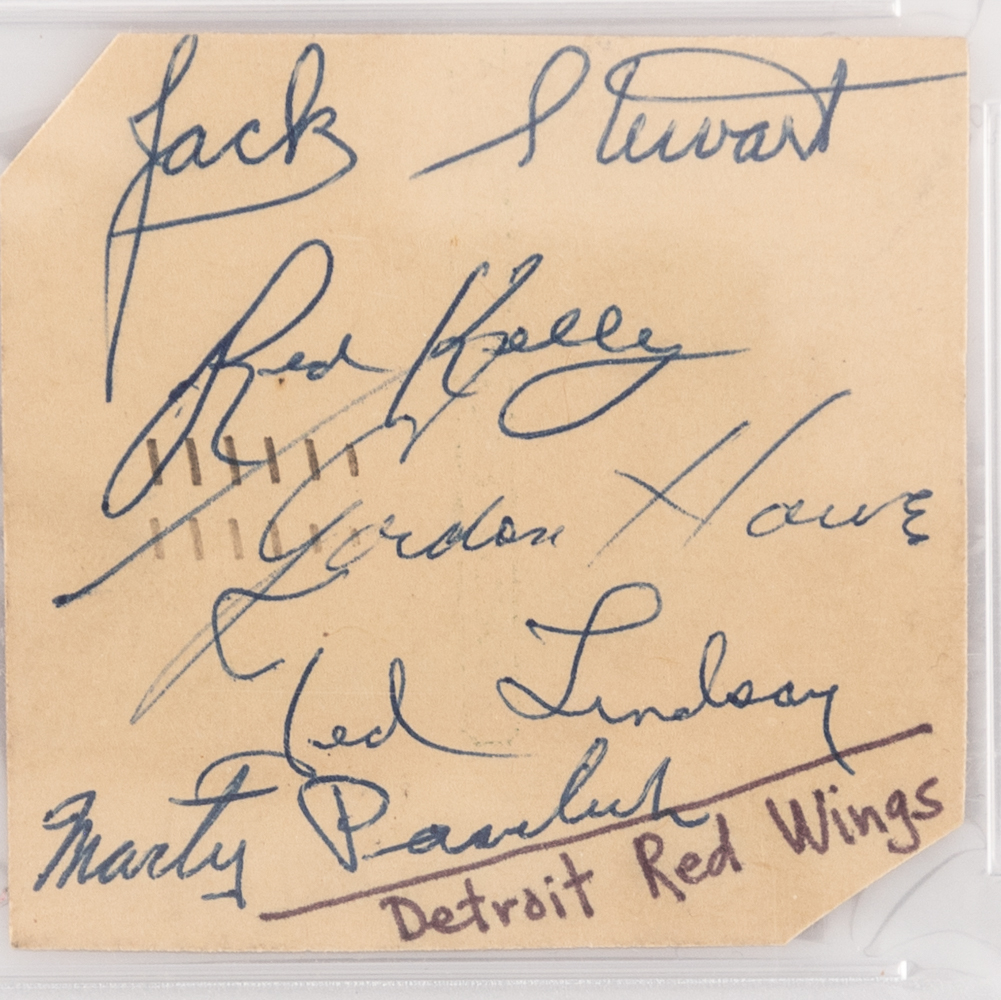 Jack Stewart
Red Kelly
Gordon Howe
Ted Lindsay
Marty Pavelich
Detroit Red Wings